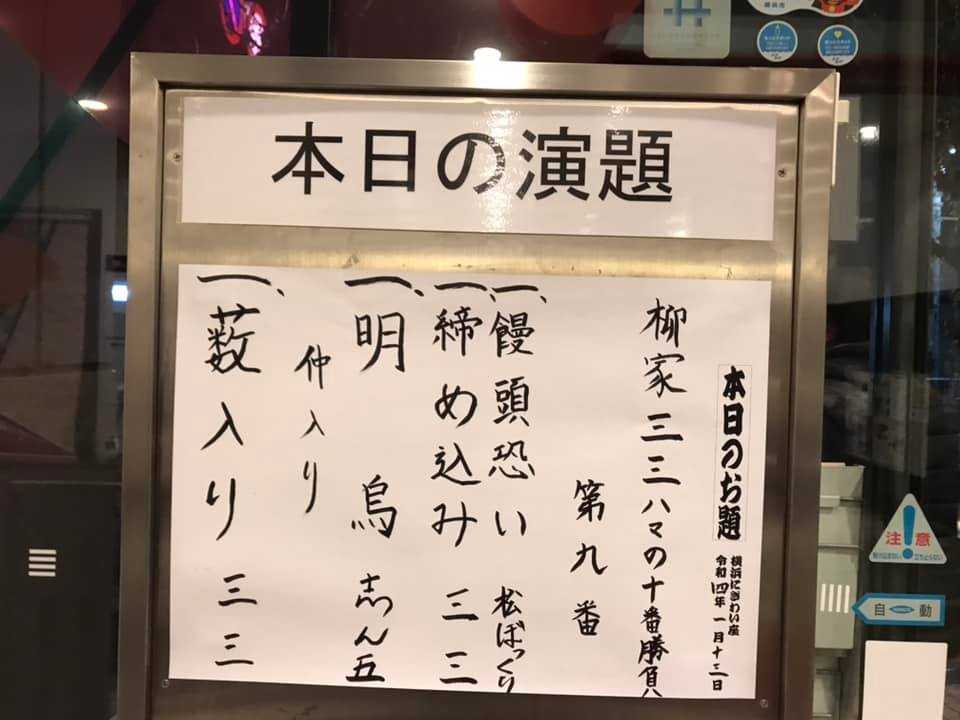 本日の演題
本日のお題
横浜にぎわい座
令和四年一月十三日
柳家三三ハマの十番勝負
第九番
一、饅頭恐い 松ぼっくり
一、締め込み 三三
一、明烏 志ん五
仲入り
一、薮入り 三三
注意
自動